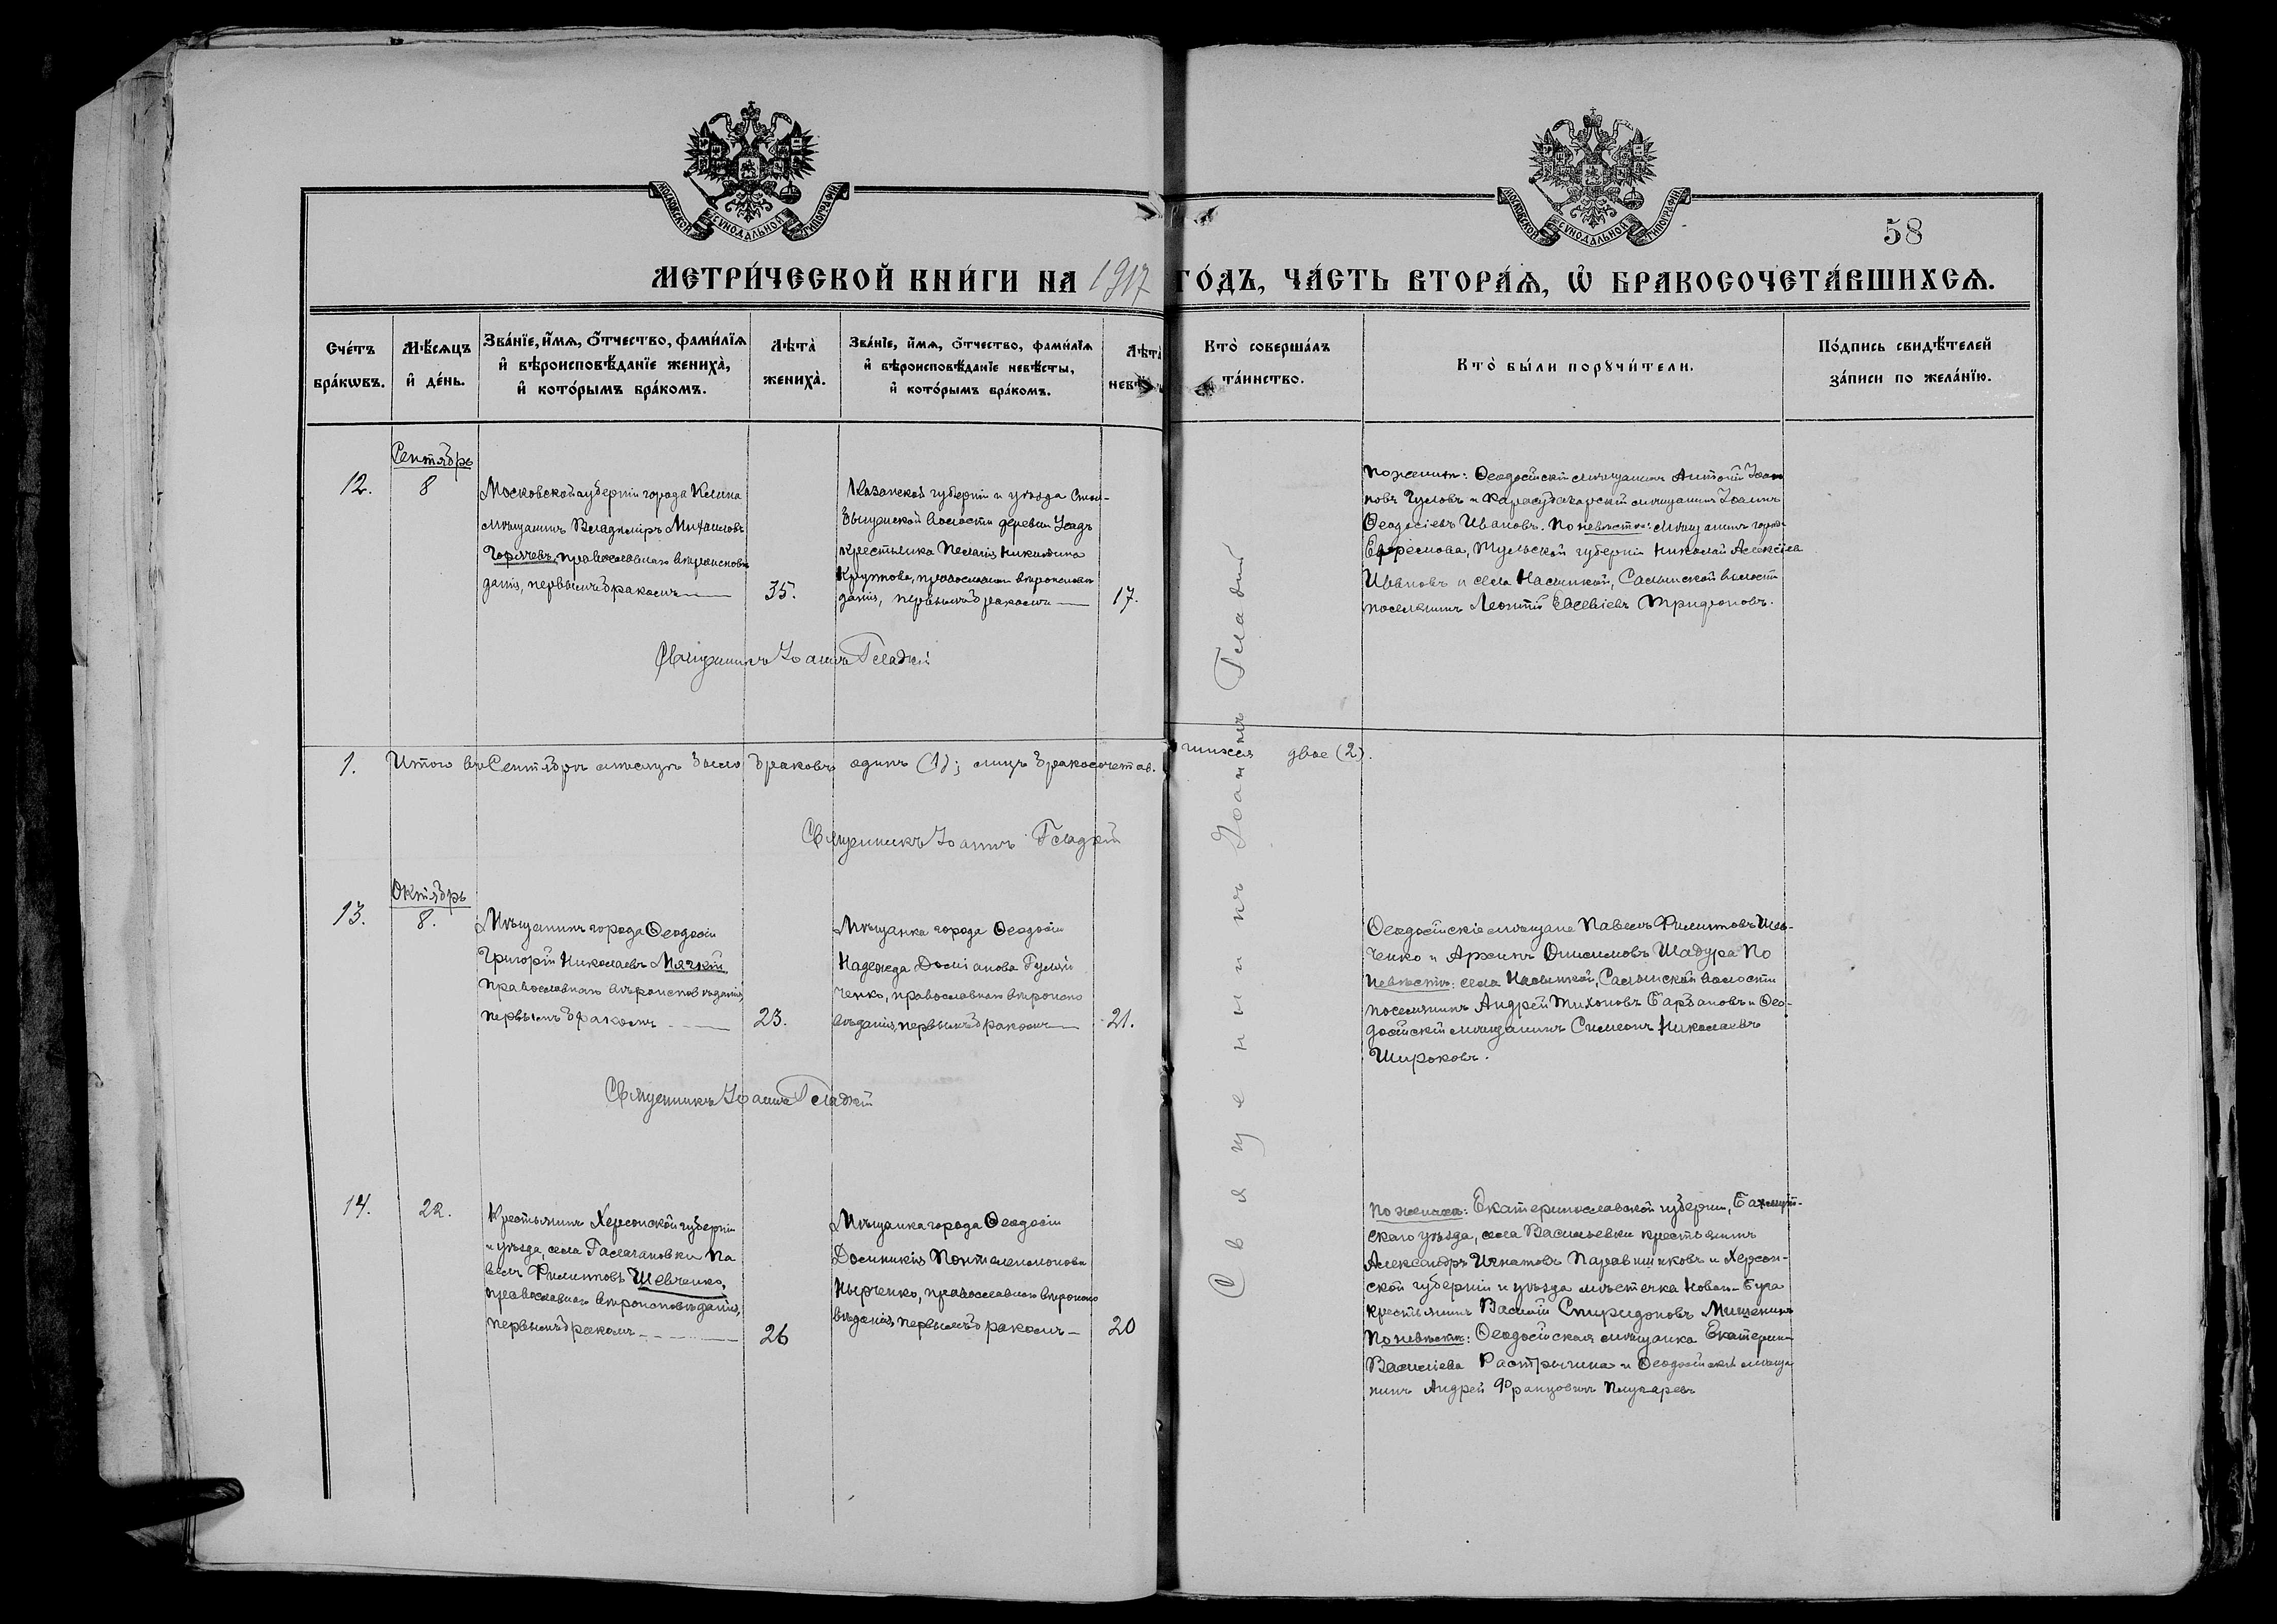 МОСКОВСКОЙ СУНОДАЛЬНОЙ ТИПОГРАФІИ
МОСКОВСКОЙ СУНОДАЛЬНОЙ ТИПОГРАФІИ
58
МЕТРИ́ЧЕСКОЙ КНИ́ГИ НА 1917 ГО́ДЪ, ЧА́СТЬ ВТОРА́Ѧ, Ѽ БРАКОСОЧЕТА́ВШИХСѦ.
Сче́тъ
бра́кωвъ.
Мѣ́сѧцъ
и҆ де́нь.
Зва́нїе, и҆́мѧ, о҆́тчество, фами́лїѧ
и҆ вѣроисповѣ́данїе жениха̀,
и҆ кото́рымъ бра́комъ.
Лѣта̀
жениха̀.
Зва́нїе, и҆́мѧ, о҆́тчество, фами́лїѧ
и҆ вѣроисповѣ́данїе невѣ́сты,
и҆ кото́рымъ бра́комъ.
Лѣта̀
невѣ́
Кто̀ соверша́лъ
та́инство.
Кто̀ бы́ли порꙋчи́тели.
По́дпись свидѣ́телей
за́писи по жела́нїю.
Сентябрь
12.
8
Московской губерніи города Клина
мѣщанинъ Владиміръ Михаиловъ
Горячевъ, православнаго вѣроисповѣ
данія, первымъ бракомъ
35.
Казанской губерніи и уѣзда
волости деревни Усадъ
крестьянка Пелагія Никитина
Крутова, православнаго вѣроисповѣ
данія, первымъ бракомъ
17.
По женихѣ: Ѳеодосійскій мѣщанинъ Антоній Іоан
новъ Гусловъ и Карасубазарскій мѣщанинъ Іоаннъ
Ѳеодосіевъ Ивановъ. По невѣстѣ: мѣщанинъ города
Ефремова, Тульской губерніи Николай Алексіевъ
Ивановъ и села Насыпкой, Салынской волости
поселянинъ Леонтій Евсевіевъ Трифоновъ.
Священникъ Іоаннъ Гладкій
Священникъ Іоаннъ Гладкій
1. Итого въ Сентябрѣ мѣсяцѣ было браковъ одинъ (1); лицъ бракосочетав.шихся двое (2).
Священникъ Іоаннъ Гладкій
Октябрь
13.
8.
Мѣщанинъ города Ѳеодосіи
Григорій Николаевъ Мягкій
православнаго вѣроисповѣданія,
первымъ бракомъ
23.
Мѣщанка города Ѳеодосіи
Надежда Даміанова Гуляй
ченко, православнаго вѣроиспо
вѣданія, первымъ бракомъ
21.
Ѳеодосійскіе мѣщане Павелъ Филипповъ Шев-
ченко и Архипъ Онисимовъ Шадура По
невѣстѣ: села Насыпкой, Салынской волости
поселянинъ Андрей Тихоновъ Барбановъ и Ѳео-
досійскій мѣщанинъ Симеонъ Николаевъ
Широковъ.
Священникъ Іоаннъ Гладкій
14.
22.
Крестьянинъ Херсонской губерніи
и уѣзда, села Галагановки Па
велъ Филипповъ Шевченко,
православнаго вѣроисповѣданія,
первымъ бракомъ
26
Мѣщанка города Ѳеодосіи
Домникія Понтелеимонова
Нырченко, православнаго вѣроиспо
вѣданія, первымъ бракомъ
20
По женихѣ: Екатеринославской губерніи, Бахмут-
скаго уѣзда, села Васильевки крестьянинъ
Александръ Игнатовъ Паравшиковъ и Херсон-
ской губерніи и уѣзда мѣстечка Новый-Буга
крестьянинъ Василій Спиридоновъ Мишенинъ
По невѣстѣ: Ѳеодосійская мѣщанка Екатерина
Василіева Растрыгина и Ѳеодосійскій мѣща
нинъ Андрей Францовичъ